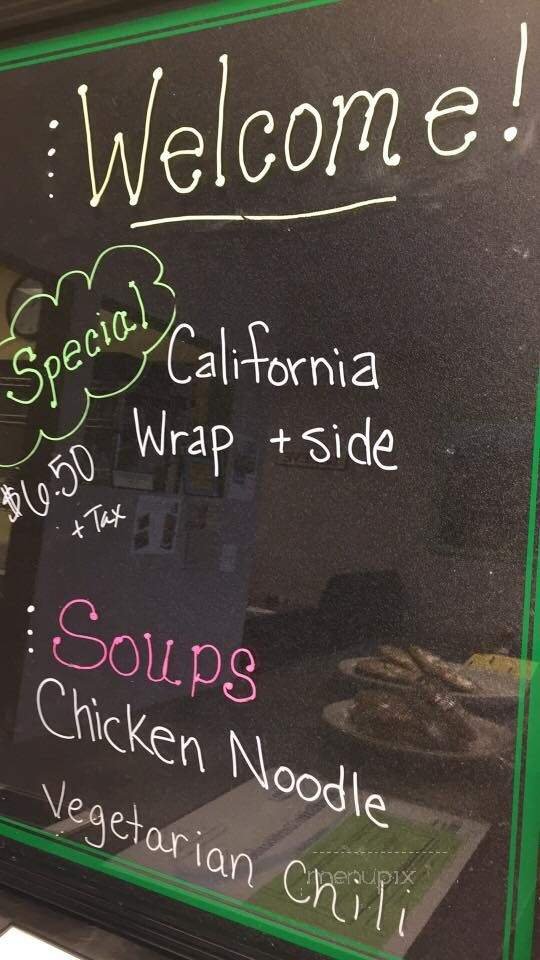 Welcome!
Special
California
Wrap + side
$6.50
+ Tax
Soups
Chicken Noodle
Vegetarian Chili
menupix